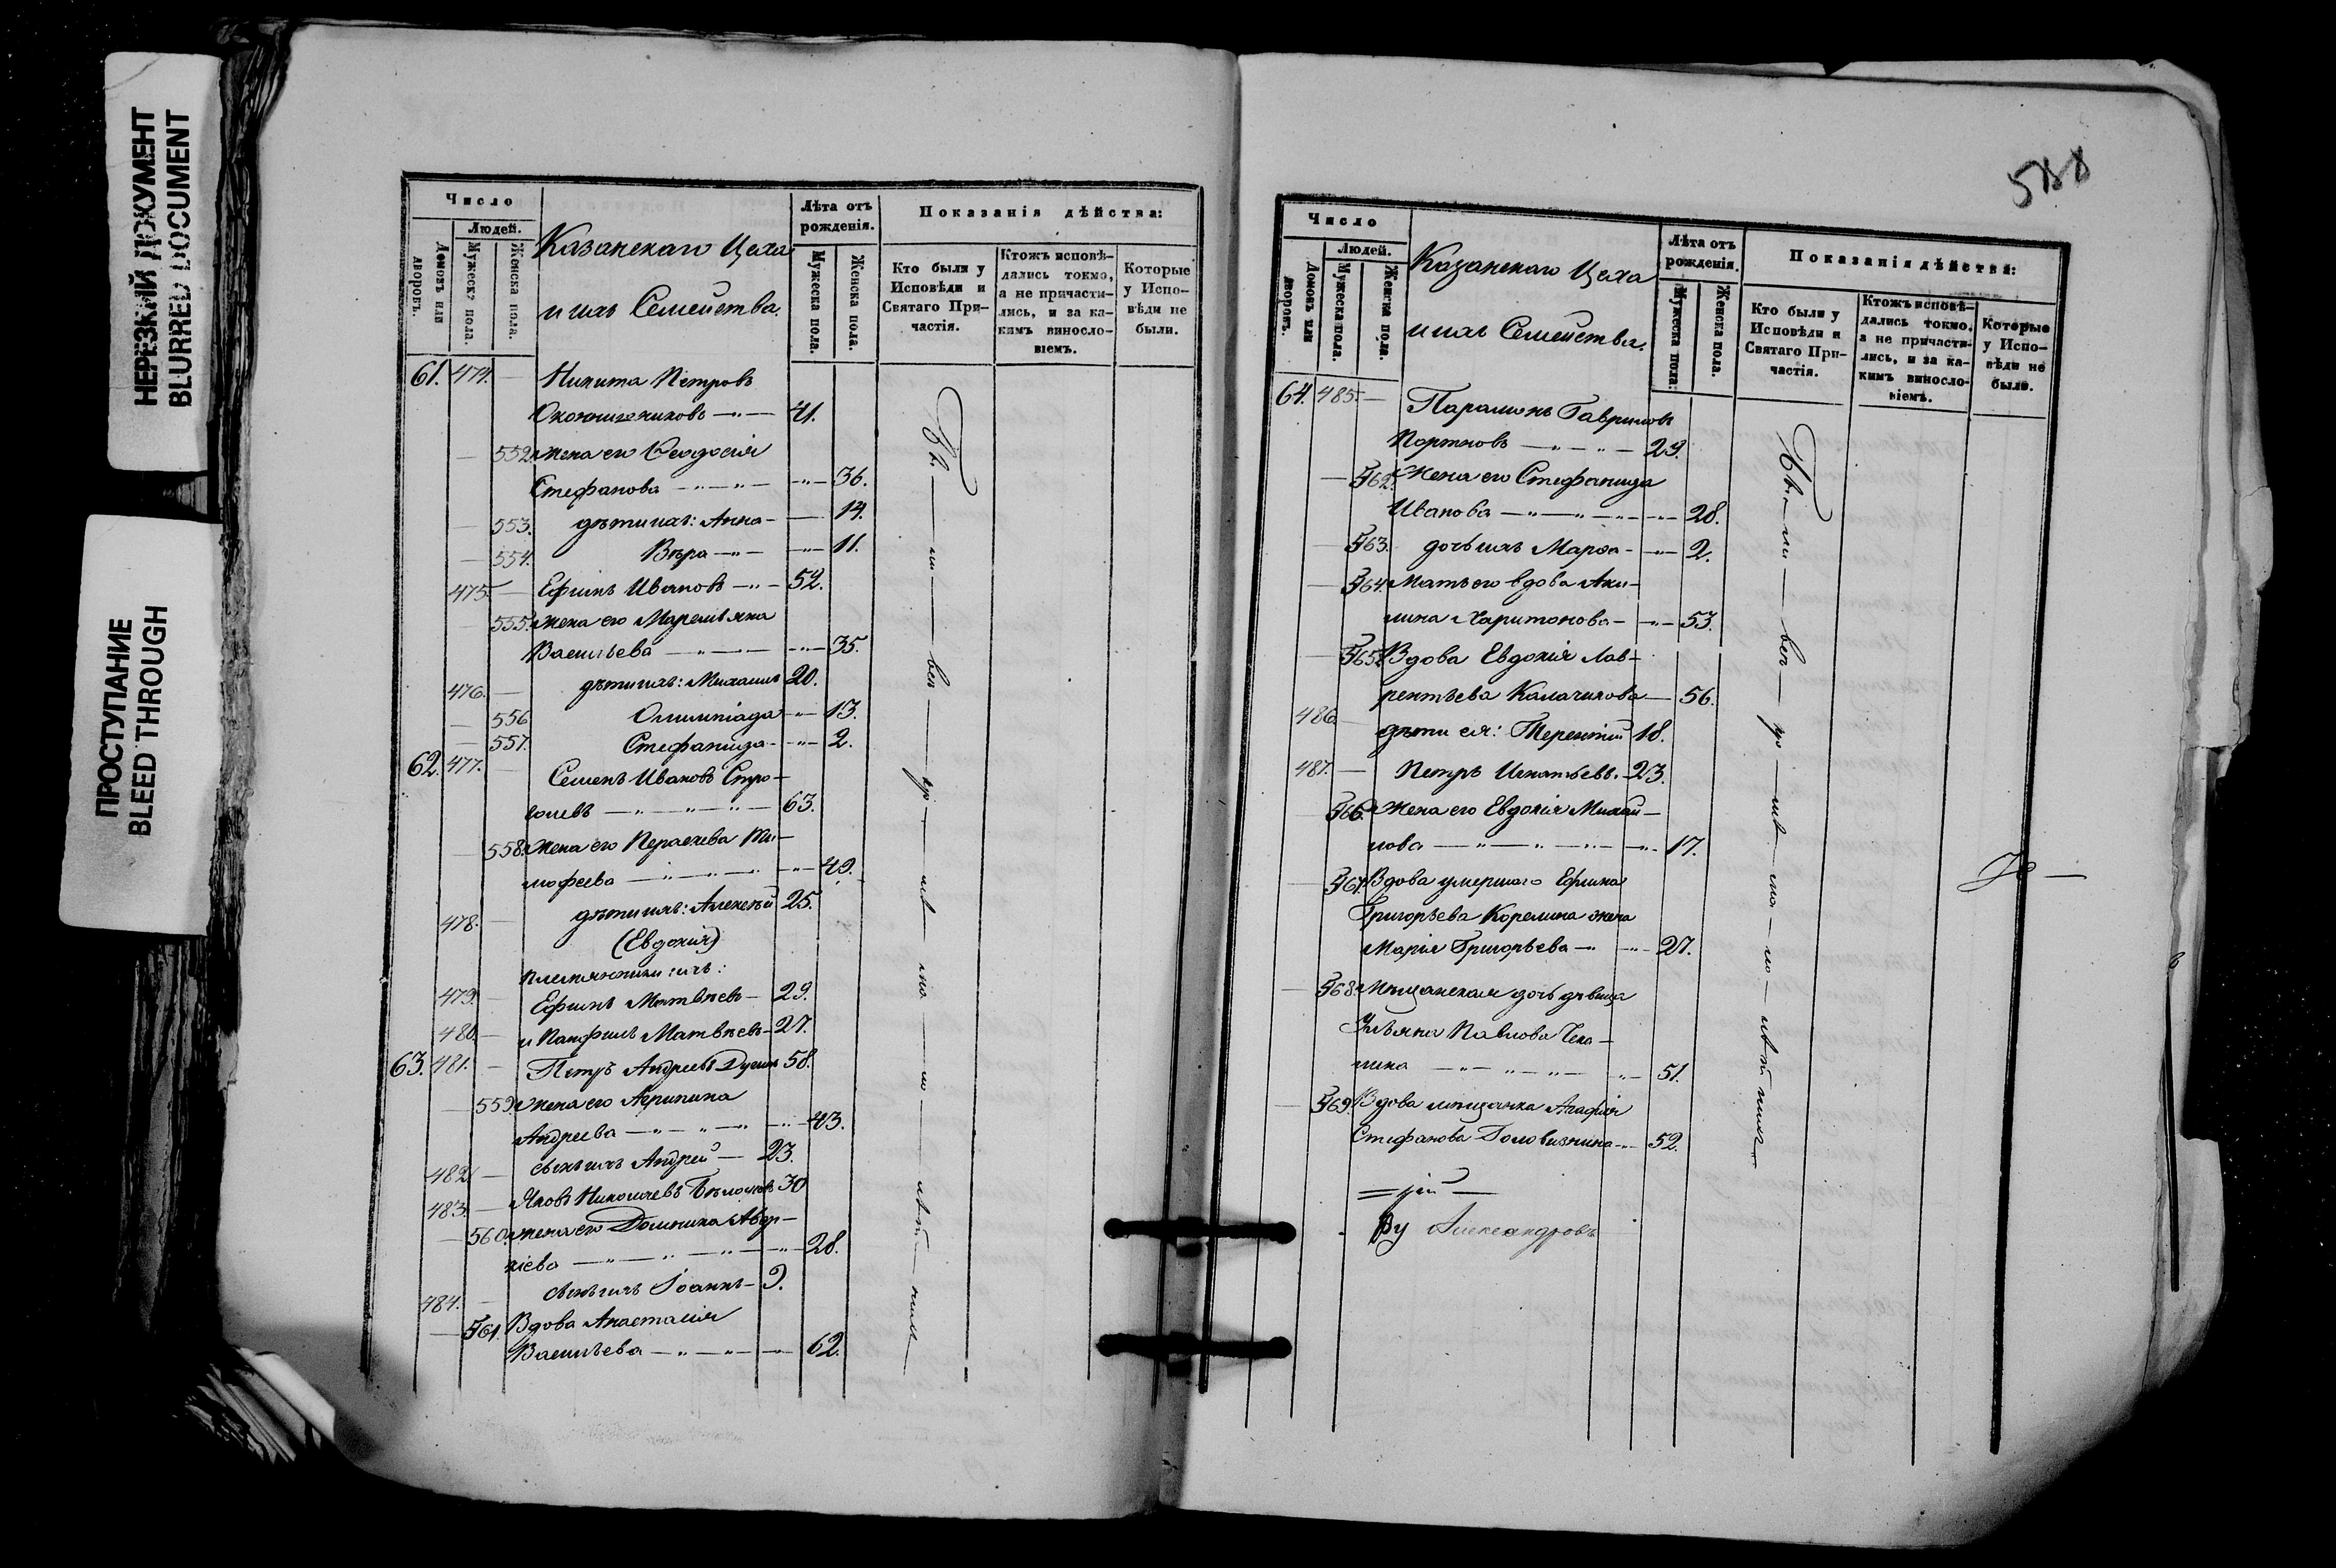 НЕРЕЗКИЙ ДОКУМЕНТ
BLURRED DOCUMENT
ПРОСТУПАНИЕ
BLEED THROUGH
Число
Людей.
Домовъ или дворовъ.
Мужеска пола.
Женска пола.
Казанскаго Цеха
и ихъ Семейства.
Лѣта отъ рожденія.
Мужеска пола.
Женска пола.
Показанія дѣйства:
Кто были у Исповѣди и Святаго Причастія.
Ктожъ исповѣдались токмо, а не причастились, и за какимъ винословіемъ.
Которые у Исповѣди не были.
61. 474. — Никита Петровъ
41.
552. жена его Ѳеодосія
Стефанова — 36.
553. дѣти ихъ: Анна — 14.
554. Вѣра — 11.
475. — Ефимъ Ивановъ — 52.
555. жена его
Васильева — 35.
476. — дѣти ихъ: Михаилъ 20.
556. Олимпіада — 13.
557. Стефанида — 2.
62. 477. — Семенъ Ивановъ
63.
558. жена его Параскева Ти-
мофеева — 49.
478. — дѣти ихъ: Алексѣй 25.
(Евдокія)
племянники ихъ:
479. — Ефимъ Матвѣевъ — 29.
480. — и Панфилъ Матвѣевъ — 27.
63. 481. — Петръ Андреевъ 58.
559. жена его Агрипина
Андреева — 43.
482. — сынъ ихъ Андрей — 23.
483. — Яковъ Николаевъ 30
560. жена его Домника Авер-
кіева — 28.
484. — сынъ ихъ Іоаннъ — 9.
561. Вдова Анастасія
Васильева — 62.
588
Число
Людей.
Домовъ или дворовъ.
Мужеска пола.
Женска пола.
Казанскаго Цеха
и ихъ Семейства.
Лѣта отъ рожденія.
Мужеска пола.
Женска пола.
Показанія дѣйства:
Кто были у Исповѣди и Святаго Причастія.
Ктожъ исповѣдались токмо, а не причастились, и за какимъ винословіемъ.
Которые у Исповѣди не были.
64. 485. — Парамонъ Гавриловъ
Портновъ — 29.
562. Жена его Стефанида
Иванова — 28.
563. дочь ихъ Марѳа — 2.
564. Мать его вдова Аки-
лина Харитонова — 53.
565. Вдова Евдокія Лав-
рентьева Калачикова — 56.
486. — дѣти ея: Терентій 18.
487. — Петръ Игнатьевъ — 23.
566. Жена его Евдокія Михай-
лова — 17.
567. Вдова умершаго Ефима
Григорьева Корелина жена
Марія Григорьева — 27.
568. Мѣщанская дочь дѣвица
Ульяна Павлова
51.
569. Вдова мѣщанка Агафія
Стефанова Головизнина — 52.
Александровъ